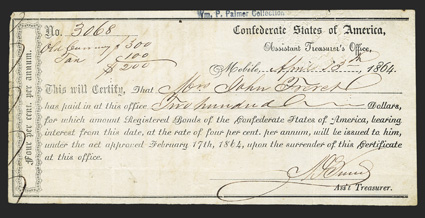 Wm. P. Palmer Collection
No. 3068
Confederate States of America,
Assistant Treasurer's Office,
Old Currency $300
Tax $100
$200
Mobile, April 13th 1864.
This will Certify, That Mrs John
has paid in at this office Two hundred Dollars,
for which amount Registered Bonds of the Confederate States of America, bearing
interest from this date, at the rate of four per cent. per annum, will be issued to him,
under the act approved February 17th, 1864, upon the surrender of this Certificate
at this office.
Ass't Treasurer.
Four per cent. per annum.